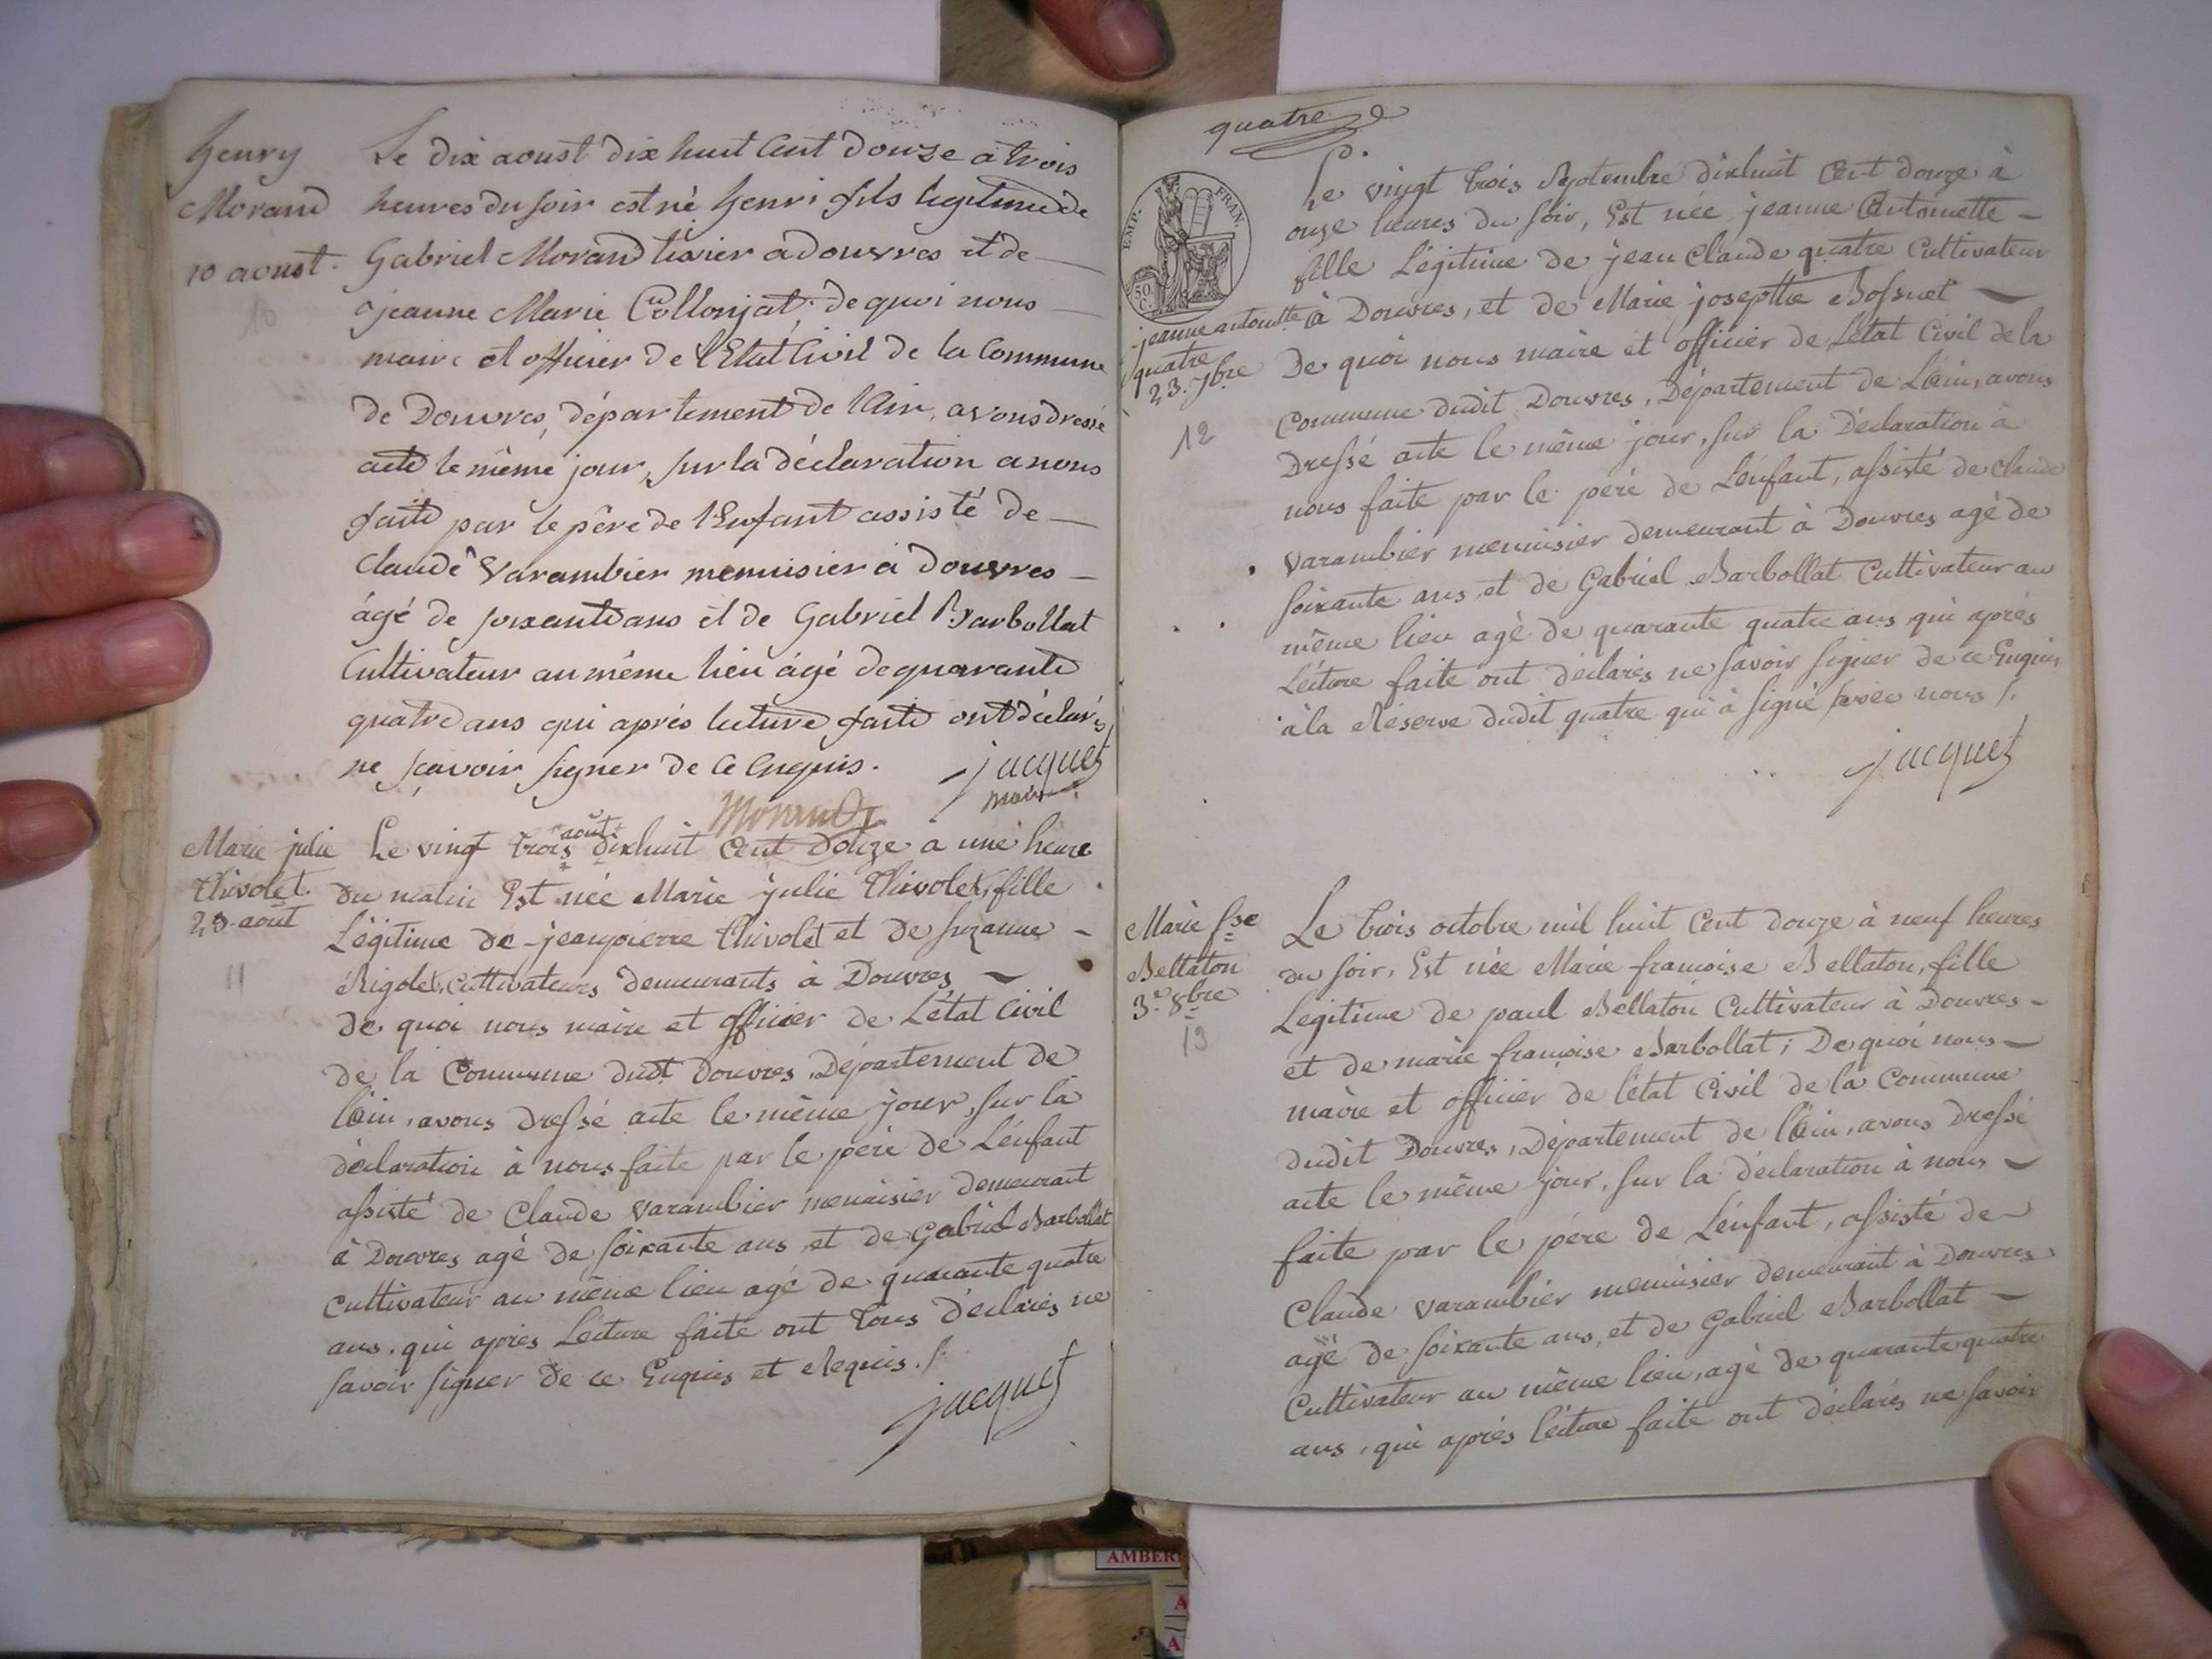 henry
Morand
10 aoust.
10
Le dix aoust dix huit Cent douze a trois
heures du soir est né henri fils legitime de
Gabriel Morand tixier a douvres et de
jeanne Marie Collonjat, de quoi nous
maire et officier de l'Etat Civil de la Commune
de Douvres, département de l'Ain, avons dressé
acte le même jour, sur la déclaration a nous
faite par le père de l'Enfant assisté de
Claude Varambier menuisier a douvres
âgé de soixante ans et de Gabriel Barbollat
Cultivateur au même lieu âgé de quarante
quatre ans qui après lecture faite ont déclarés
ne sçavoir signer de ce enquis.
jacquet
maire
Morand
Marie julie
Thivolet.
23. août
11
Le vingt trois août dixhuit Cent douze a une heure
du matin Est née Marie julie Thivolet, fille
Légitime de jeanpierre Thivolet et de suzanne
Rigolet, Cultivateurs demeurants à Douvres
de quoi nous maire et officier de L'état Civil
de la Commune dudt Douvres, Département de
l'Ain, avons Dressé acte le même jour, sur la
déclaration à nous faite par le père de L'énfant
assisté de Claude Varambier menuisier demeurant
à Douvres agé de soixante ans, et de Gabriel Barbollat
Cultivateur au même lieu agé de quarante quatre
ans, qui après Lécture faite ont tous déclarés ne
savoir signer de ce Enquis et Requis./.
jacquet
quatre
EMP. FRAN.
50 C.
jeanne antoinette
quatre
23. 7bre
12
Le vingt trois Septembre dixhuit Cent douze à
onze heures du soir, Est née jeanne Antoinette
fille Légitime de jean Claude quatre Cultivateur
à Douvres, et de Marie josepthe Bossuet
De quoi nous maire et officier de L'état Civil de la
Commune dudit Douvres, Département de L'Ain, avons
Dressé acte le même jour, sur la Déclaration à
nous faite par le père de L'énfant, assisté de Claude
Varambier menuisier demeurant à Douvres agé de
soixante ans, et de Gabriel Barbollat Cultivateur au
même lieu agé de quarante quatre ans qui après
Lécture faite ont déclarés ne savoir signer de ce Enquis
à la Réserve dudit quatre qui à signé avec nous /.
jacquet
Marie fse
Bellaton
3. 8bre
13
Le trois octobre mil huit Cent douze à neuf heures
du soir, Est née Marie francoise Bellaton, fille
Légitime de paul Bellaton Cultivateur à Douvres
et de marie françoise Barbollat; De quoi nous
maire et officier de l'état Civil de la Commune
dudit Douvres, Département de l'Ain, avons Dressé
acte le même jour, sur la déclaration à nous
faite par le père de L'énfant, assisté de
Claude Varambier menuisier demeurant à Douvres
agé de soixante ans, et de Gabriel Barbollat
Cultivateur au même lieu, agé de quarante quatre
ans, qui après lécture faite ont déclarés ne savoir
AMBER
A
A